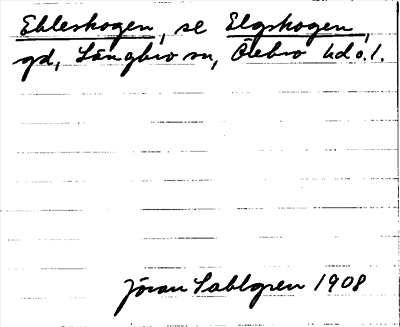 Ebleskogen, se Elgskogen,
gd, Längbro sn, Örebro hd o. l.
Jöran Sahlgren 1908